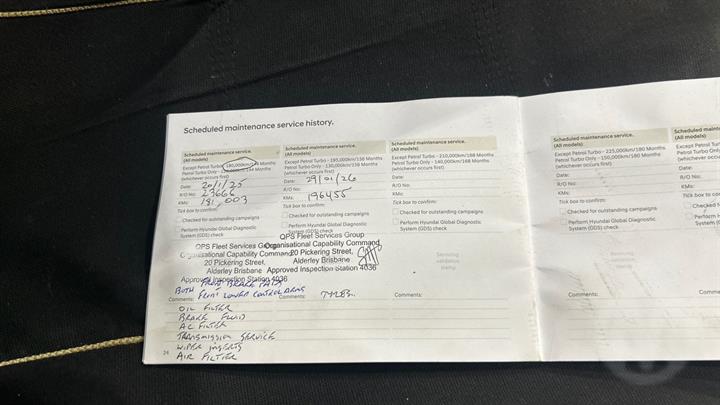 Scheduled maintenance service history.
Scheduled maintenance service.
(All models)
Except Petrol Turbo - 180,000km/144 Months
(whichever occurs first)
Date: 20/11/25
R/O No: 23666
KMs: 181,003
Tick box to confirm:
Checked for outstanding campaigns
Perform Hyundai Global Diagnostic
System (GDS) check
QPS Fleet Services Group
Organisational Capability Command
20 Pickering Street,
Alderley Brisbane
Approved Inspection Station 4036
FRONT BRAKE PADS
BOTH FRONT LOWER CONTROL ARMS
Comments:
OIL FILTER
BRAKE FLUID
AC FILTER
TRANSMISSION SERVICE
WIPER INSERTS
AIR FILTER
24
Scheduled maintenance service.
(All models)
Except Petrol Turbo - 195,000km/156 Months
Petrol Turbo Only - 130,000km/156 Months
(whichever occurs first)
Date: 29/01/26
R/O No:
KMs: 196455
Tick box to confirm:
Checked for outstanding campaigns
Perform Hyundai Global Diagnostic
System (GDS) check
QPS Fleet Services Group
Organisational Capability Command
20 Pickering Street,
Alderley Brisbane
Approved Inspection Station 4036
Comments:
Scheduled maintenance service.
(All models)
Except Petrol Turbo - 210,000km/168 Months
Petrol Turbo Only - 140,000km/168 Months
(whichever occurs first)
Date:
R/O No:
KMs:
Tick box to confirm:
Checked for outstanding campaigns
Perform Hyundai Global Diagnostic
System (GDS) check
Servicing
validation
stamp
Comments:
Scheduled maintenance service.
(All models)
Except Petrol Turbo - 225,000km/180 Months
Petrol Turbo Only - 150,000km/180 Months
(whichever occurs first)
Date:
R/O No:
KMs:
Tick box to confirm:
Checked for outstanding campaigns
Perform Hyundai Global Diagnostic
System (GDS) check
Servicing
validation
stamp
Comments:
Scheduled mainten
(All models)
Except Petrol
Petrol Turbo Only
(whichever occurs
Date:
R/O No:
KMs:
Tick box to conf
Checked f
Perform H
System (G
Comments: